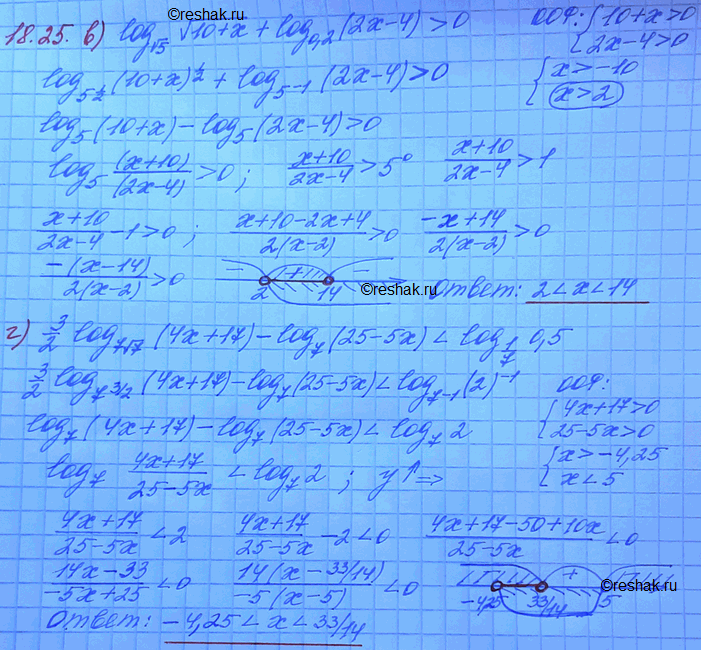 ©reshak.ru
18.25. в) log_√5 √10+x + log_0,2 (2x-4) > 0   ООФ: { 10+x>0
log_5^½ (10+x)^½ + log_5^-1 (2x-4) > 0   { 2x-4>0
{ x>-10
log_5 (10+x) - log_5 (2x-4) > 0   { x>2
log_5 (x+10)/(2x-4) > 0 ; (x+10)/(2x-4) > 5^0   (x+10)/(2x-4) > 1
(x+10)/(2x-4) - 1 > 0 ; (x+10-2x+4)/(2(x-2)) > 0   (-x+14)/(2(x-2)) > 0
-(x-14)/(2(x-2)) > 0   - + -   2 14   ©reshak.ru   Ответ: 2<x<14
г) 3/2 log_7√7 (4x+17) - log_7 (25-5x) < log_1/7 0,5
3/2 log_7^3/2 (4x+17) - log_7 (25-5x) < log_7^-1 (2)^-1   ООФ:
log_7 (4x+17) - log_7 (25-5x) < log_7 2   { 4x+17>0
{ 25-5x>0
log_7 (4x+17)/(25-5x) < log_7 2 ; y↑ ⇒   { x>-4,25
{ x<5
(4x+17)/(25-5x) < 2   (4x+17)/(25-5x) - 2 < 0   (4x+17-50+10x)/(25-5x) < 0
(14x-33)/(-5x+25) < 0   14(x-33/14)/(-5(x-5)) < 0   +   -4,25 33/14 5   ©reshak.ru
Ответ: -4,25 < x < 33/14